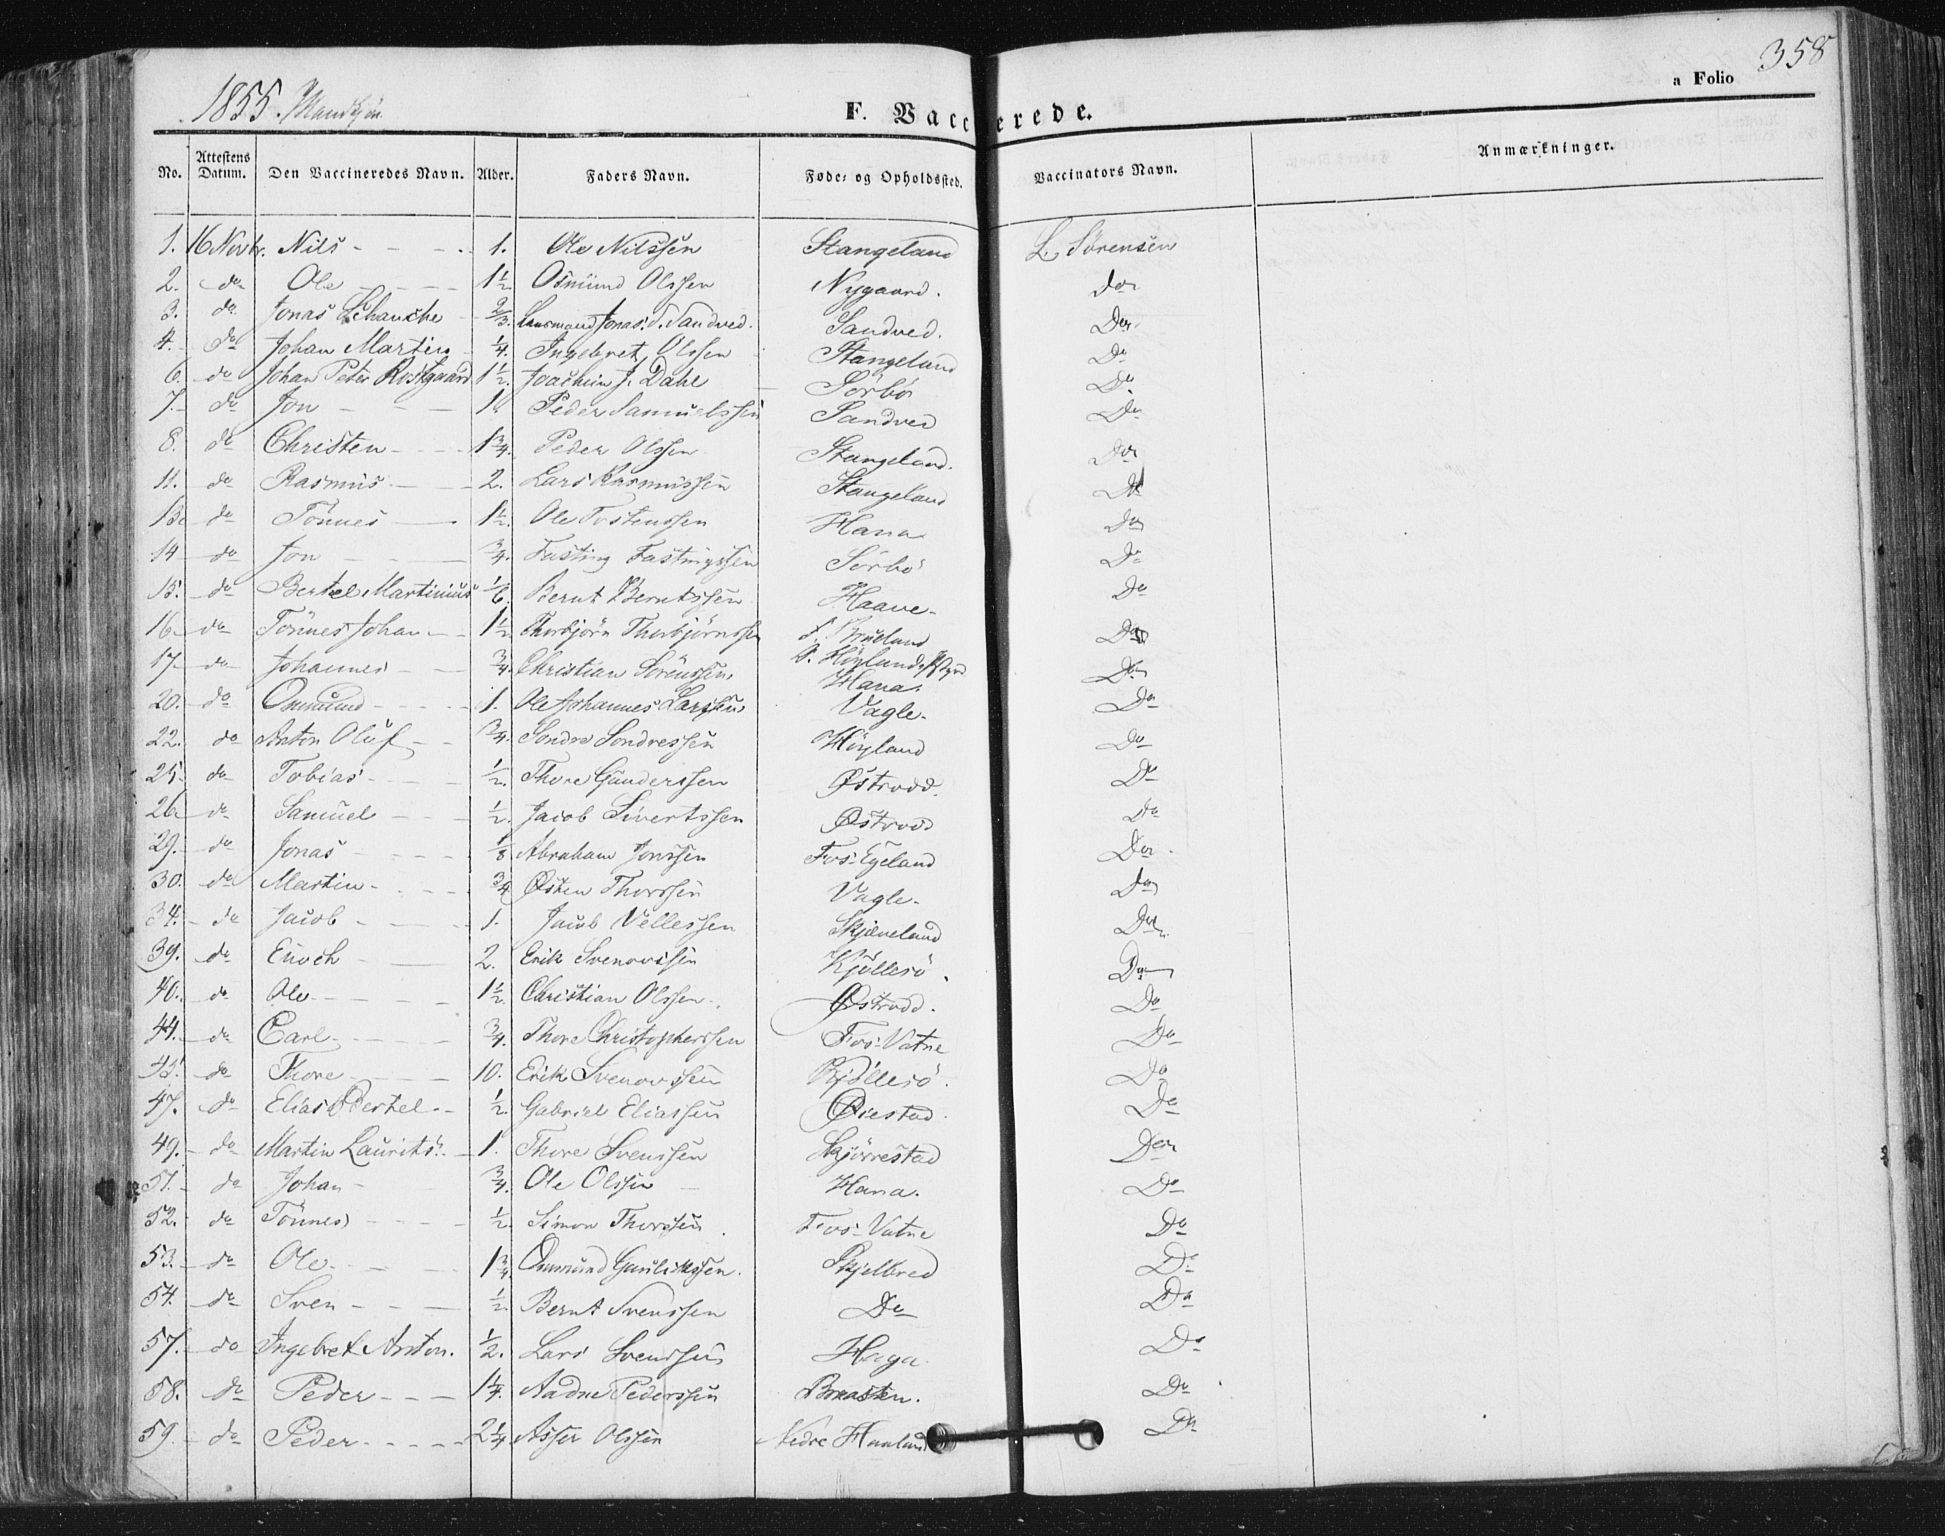 1855. Mandkjøn
F. Vaccinerede.
a Folio 358
No. Attestens Datum. Den Vaccineredes Navn. Alder. Faders Navn. Føde- og Opholdssted. Vaccinators Navn. Anmærkninger.
1. 16 Novbr. Nils - - - 1. Ole Nilssen Stangeland L. Sørensen
2. do Ole - - - 1½ Osmund Olssen Nygaard. Do
3. do Jonas Schanche 2/3. Lensmand Jonas T. Sandved. Sandved. Do
4. do Johan Martin ¼. Ingebret Olssen Stangeland Do
6. do Johan Peter Rostgaard 1½. Joachim J. Dahl Sörbö Do
7. do Jon - - - 1. Peder Samuelssen Sandved Do
8. do Christen - - 1¾. Peder Olssen Stangeland. Do
11. do Rasmus - - 2. Lars Rasmussen Stangeland Do
13 do Tönnes - - 1½. Ole Tostenssen Hana Do
14 do Jon - - - ¾. Fasting Fastingssen Sörbö Do
15. do Bertel Martinius 1/6. Bernt Berntssen Haave. Do
16 do Tönnes Johan - 1½. Thorbjörn Thorbjörnssen Do
17 do Johannes - - ¾. Christian Sörenssen Hana. Do
20. do Ommund - - 1. Ole Johannes Larssen Vagle. Do
22. do Anton Oluf - - ¾. Sondre Sondressen Höyland Do
25. do Tobias - - ½. Thore Gunderssen Østrodd. Do
26 do Samuel - - ½. Jacob Sivertssen Østrod Do
29. do Jonas - - - 1/8 Abraham Jonssen Fos-Egeland Do
30. do Martin - - - ¾ Østen Thorssen Vagle. Do
34. do Jacob - - - 1. Jacob Vellessen Skjæveland Do
39. do Enoch - - 2. Erik Svenovssen Kjöllesö. Do
40. do Ole - - - 1½. Christian Olssen. Østrodd. Do
44. do Carl - - - ¾. Thore Christopherssen Fos-Vatne Do
45. do Thore - - - 10. Erik Svenovssen Kjöllesö. Do
47. do Elias Bertel. - ½. Gabriel Eliassen Øiestad. Do
49. do Martin Laurits. - 1. Thore Svenssen Skjörrestad Do
51. do Johan - ¾. Ole Olssen Hana. Do
52. do Tönnes - - - ½. Simon Thorssen. Fos-Vatne Do
53. do Ole - - - 1¾. Ommund Gunlikssen. Skjelbred Do
54. do Sven - - - ½. Bernt Svenssen Do Do
57. do Ingebret Anton. ½. Lars Svenssen Haga. Do
58. do Peder - - - 1¼. Aadne Pederssen Braasten. Do
59. do Peder - - - 2¼ Asser Olssen Nedre Haaland Do